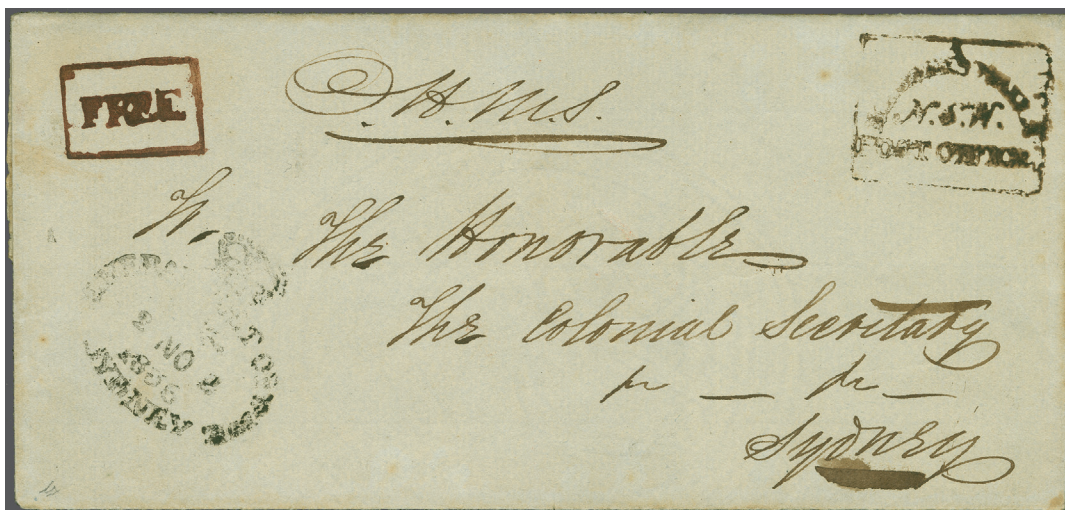 FREE
O.H.M.S.
N.S.W.
POST OFFICE
To,
The Honorable
The Colonial Secretary
Sydney
NO